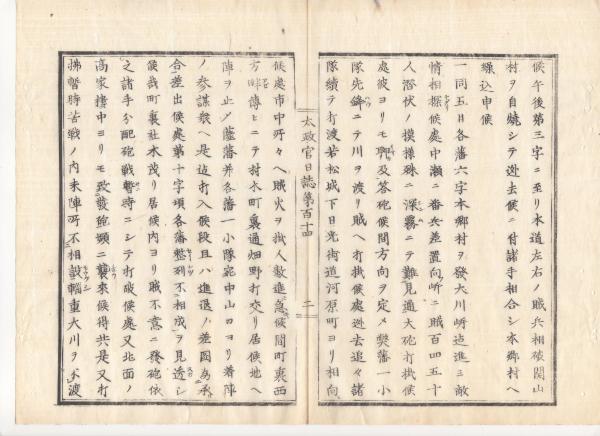 候午後第三字ニ至リ本道左右ノ賊兵相破関山
村ヲ自焼シテ逃去候ニ付諸手相合シ本郷村ヘ
繰込申候
一同五日各藩六字本郷村ヲ発大川岍迠進ミ敵
情相探候處中瀬ニ番兵差置向岍ニ賊百四五十
人潜伏ノ模様殊ニ深霧ニテ難見通大砲打掛候
處彼ヨリモ聊及答砲候間方向ヲ定メ弊藩一小
隊先鋒ニテ川ヲ渡リ賊ヘ打掛候處逃去追々諸
隊續テ打渡若松城下日光街道河原町ヨリ相向
太政官日誌第百十四
二
候處市中所々ヘ賊火ヲ掛人数進急候間町裏西
方畔傳ヒニテ材木町裏通畑野打交リ居候地ヘ
陣ヲ止メ薩藩并各藩一小隊宛中山口ヨリ着陣
ノ参謀衆ヘ是迠打入候段且ハ進退ノ差図為承
合差出候處第十字頃各藩整列不相成ヲ見透シ
候哉町裏社木茂リ居候内ヨリ賊不意ニ發砲依
之諸手分配砲戦暫時ニシテ打破候處又北面ノ
高家樓中ヨリモ致發砲頻ニ襲来候得共是又打
拂暫時苦戦ノ内未陣所不相設輜重大川ヲ不渡